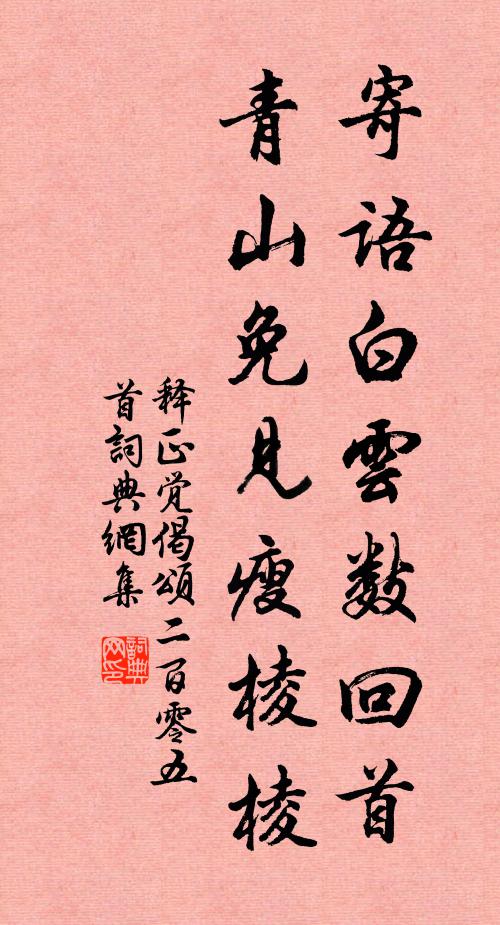 寄語白雲数回首
青山免見瘦棱棱
释正觉偈頌二百零五
首詞典網集
詞典
网印